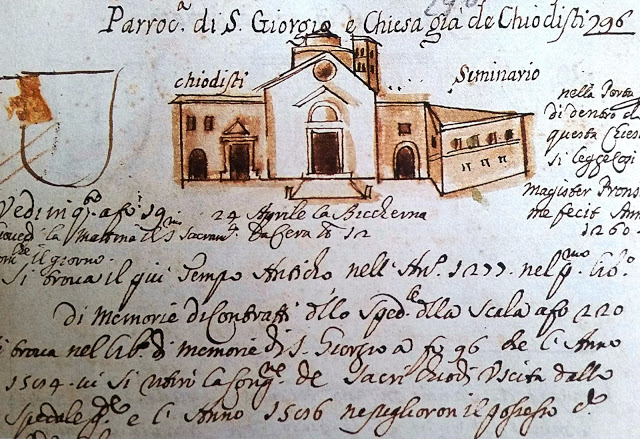 Parroc.ª di S. Giorgio e Chiesa già de Chiodisti 296
chiodisti
Seminario
nella Porta
di dentro d
questa Chies
si legge
magister
me fecit An
1260.
24 Aprile la Biccherna
la mattina
Da Cera lb 12
il giorno
Si trova il qui Tempo Anticho nell An.º 1277. nel p.mo lib.º
di Memorie di Contratti dllo Sped.le dlla Scala a fo 220
trova nel lib.º di memorie di S. Giorgio a fo 96 che l'Anno
1594. vi si ritirò la Cong.ne de Sacri Chiodi Uscita dallo
Spedale e l'Anno 1596 ne piglioron il possesso